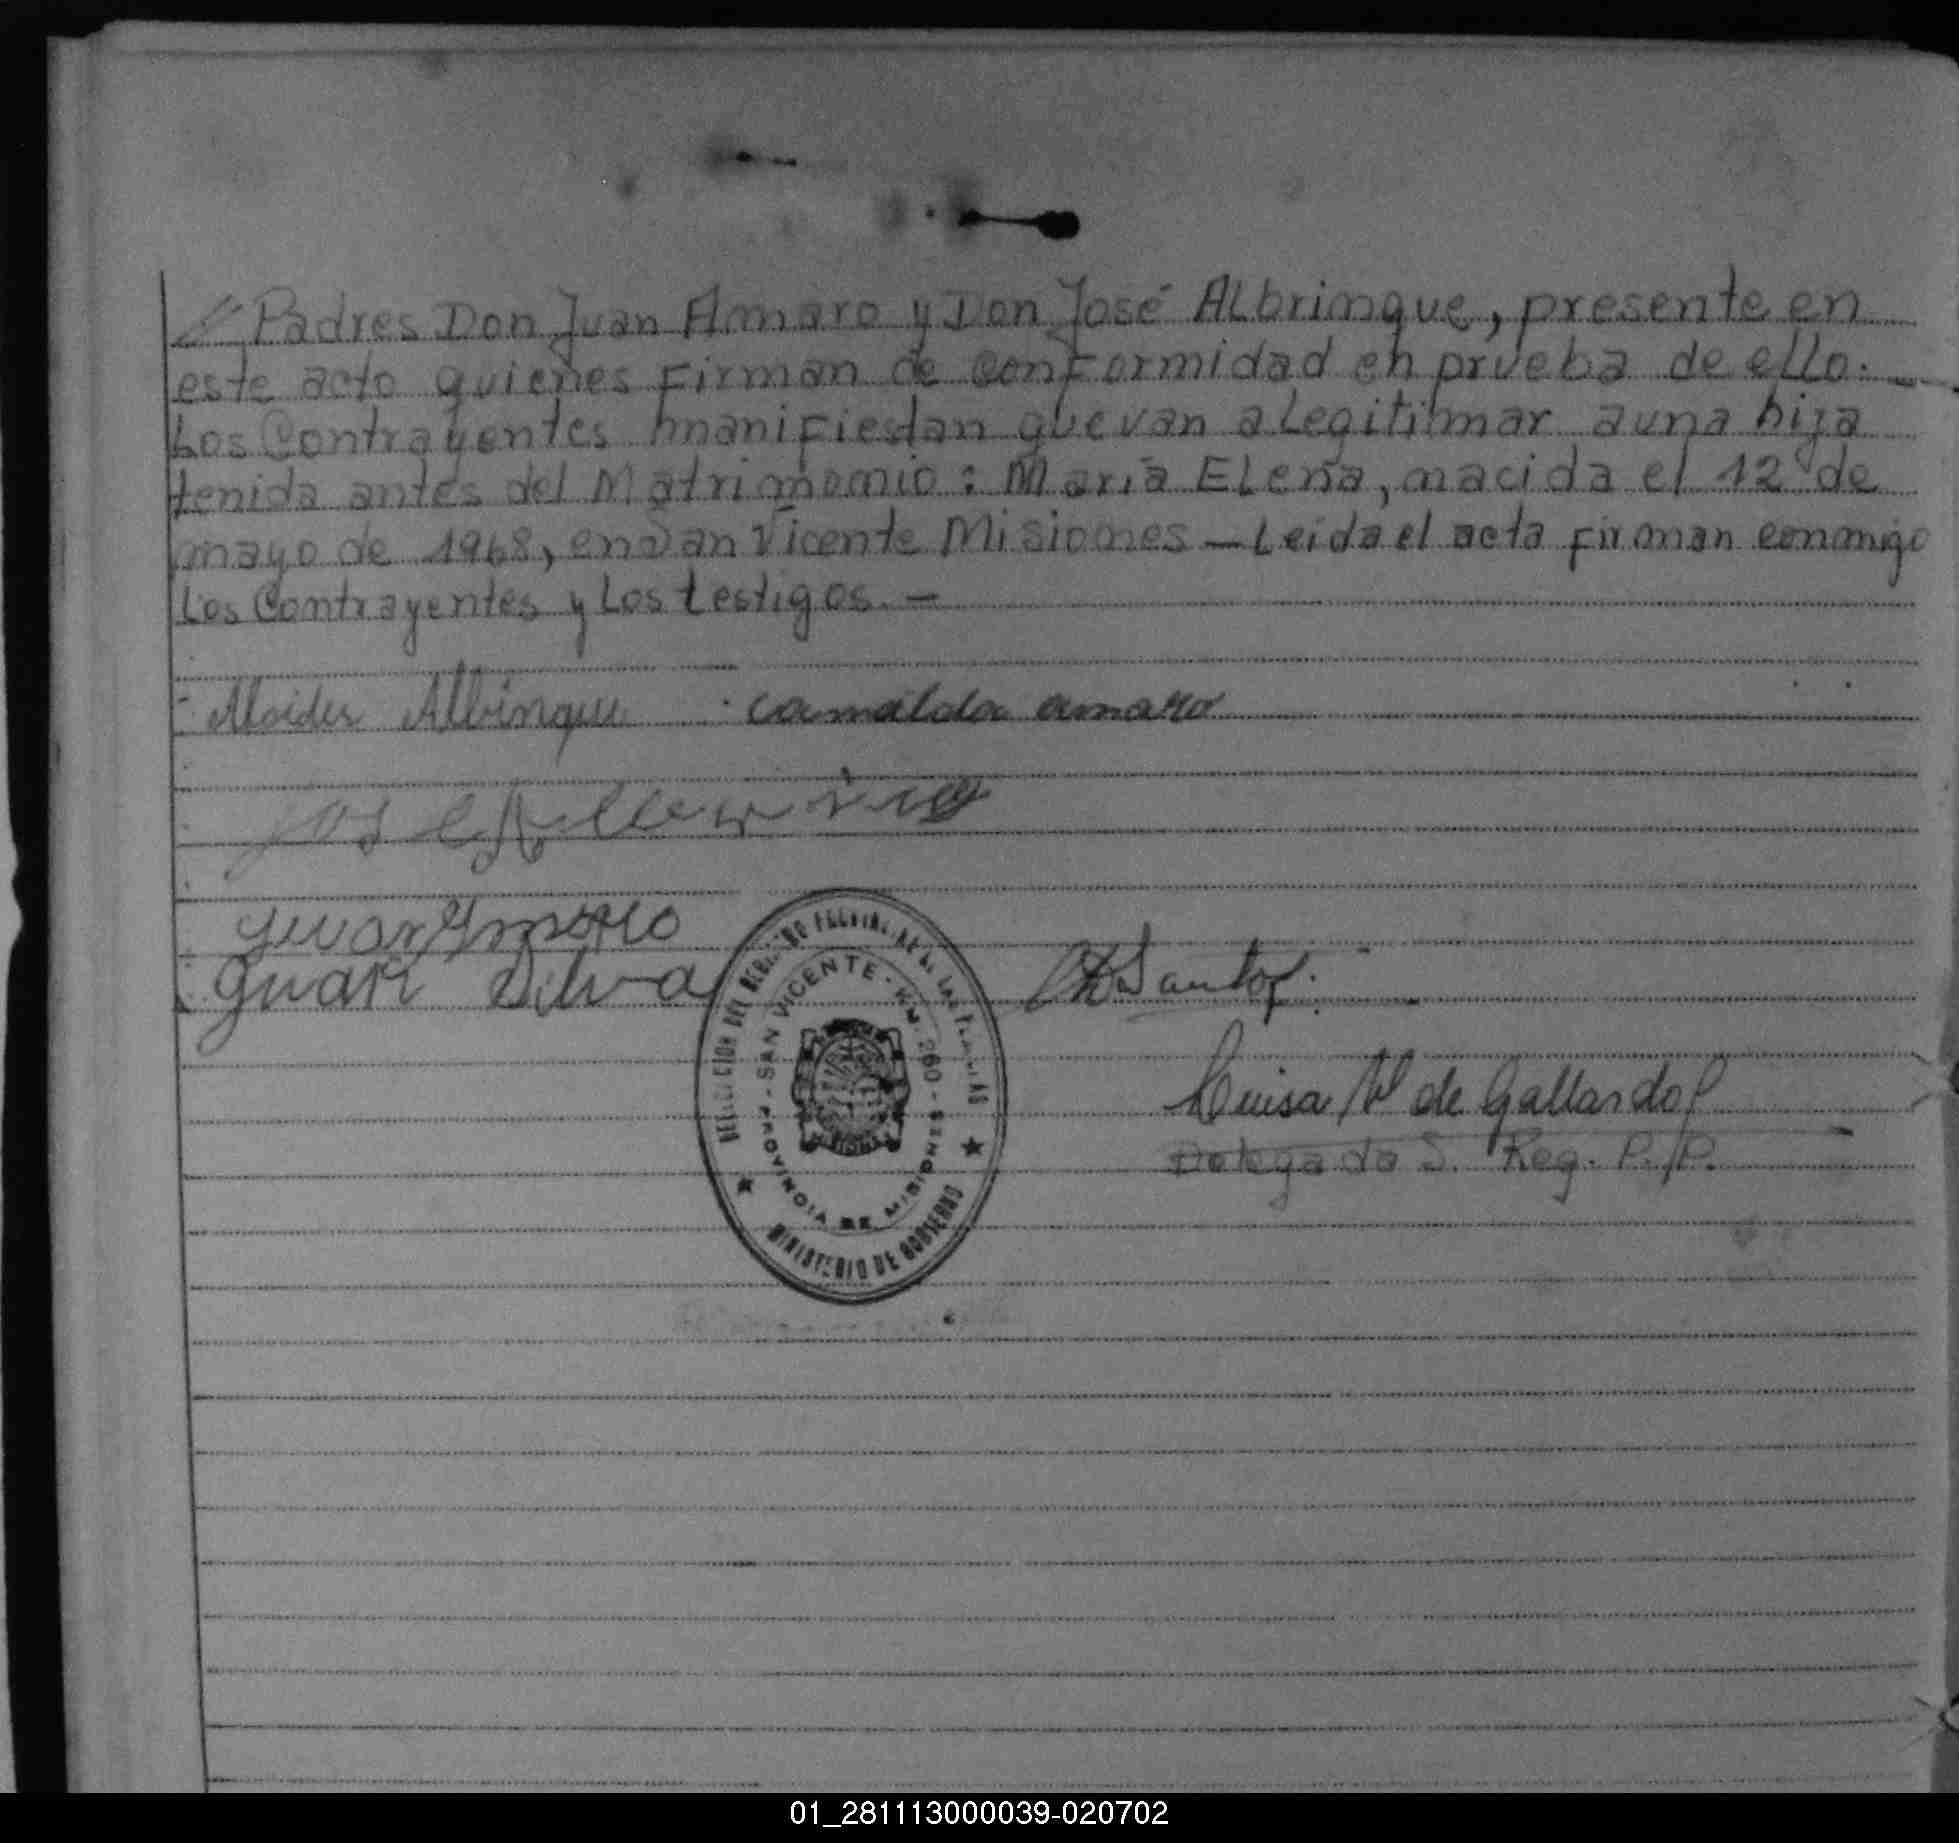 // Padres Don Juan Amaro y Don José Albrinque, presente en
este acto quienes Firman de conFormidad en prueba de ello.
Los Contrayentes maniFiestan que van a Legitimar a una hija
tenida antes del Matrimonio: María Elena, nacida el 12 de
mayo de 1968, en San Vicente Misiones — Leida el acta firman conmigo
Los Contrayentes y Los testigos. —
Alcides Albinque camilda amaro
Juan Amaro
Juan Silva Santos
Luisa V de Gallardo
Delegado S. Reg. P. P.
DELEGACION DEL REGISTRO PROVINCIAL DE LAS PERSONAS
SAN VICENTE - KM. 260 - PROVINCIA DE MISIONES
MINISTERIO DE GOBIERNO
01_281113000039-020702